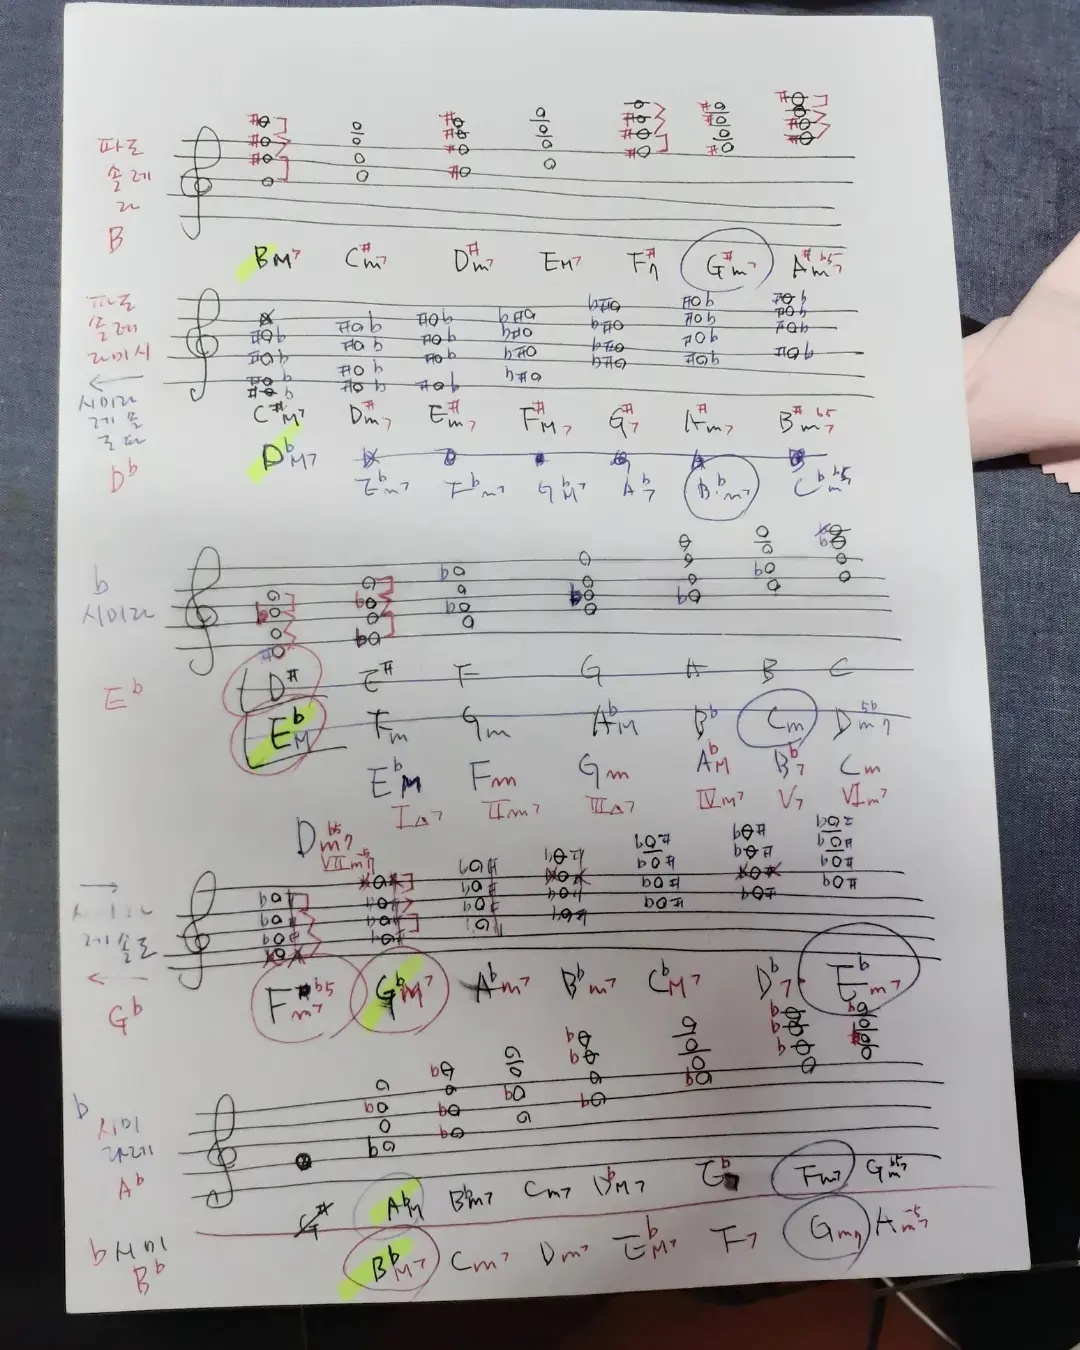 파도
솔레
라
B
BM7 C#m7 D#m7 EM7 F#7 G#m7 A#m7b5
파도
솔레
라미시
←
시미라
레솔
도파
C#M7 D#m7 E#m7 F#M7 G#7 A#m7 B#m7b5
Db
DbM7 Ebm7 Fbm7 GbM7 Ab7 Bbm7 Cbm7b5
b
시미라
D# E# F G A B C
Eb
EbM Fm Gm AbM Bb Cm Dm7 5b
EbM Fm Gm AbM Bb7 Cm
I△7 IIm7 III△7 IVM7 V7 VIm7
Dm7b5
VIIm7-5
→
레솔도
←
Gb
Fm7b5 GbM7 Abm7 Bbm7 CbM7 Db7 Ebm7
b
시미
라레
Ab
G# AbM Bbm7 Cm7 DbM7 Eb Fm7 Gm7b5
b시미
Bb
BbM7 Cm7 Dm7 EbM7 F7 Gm7 Am7-5